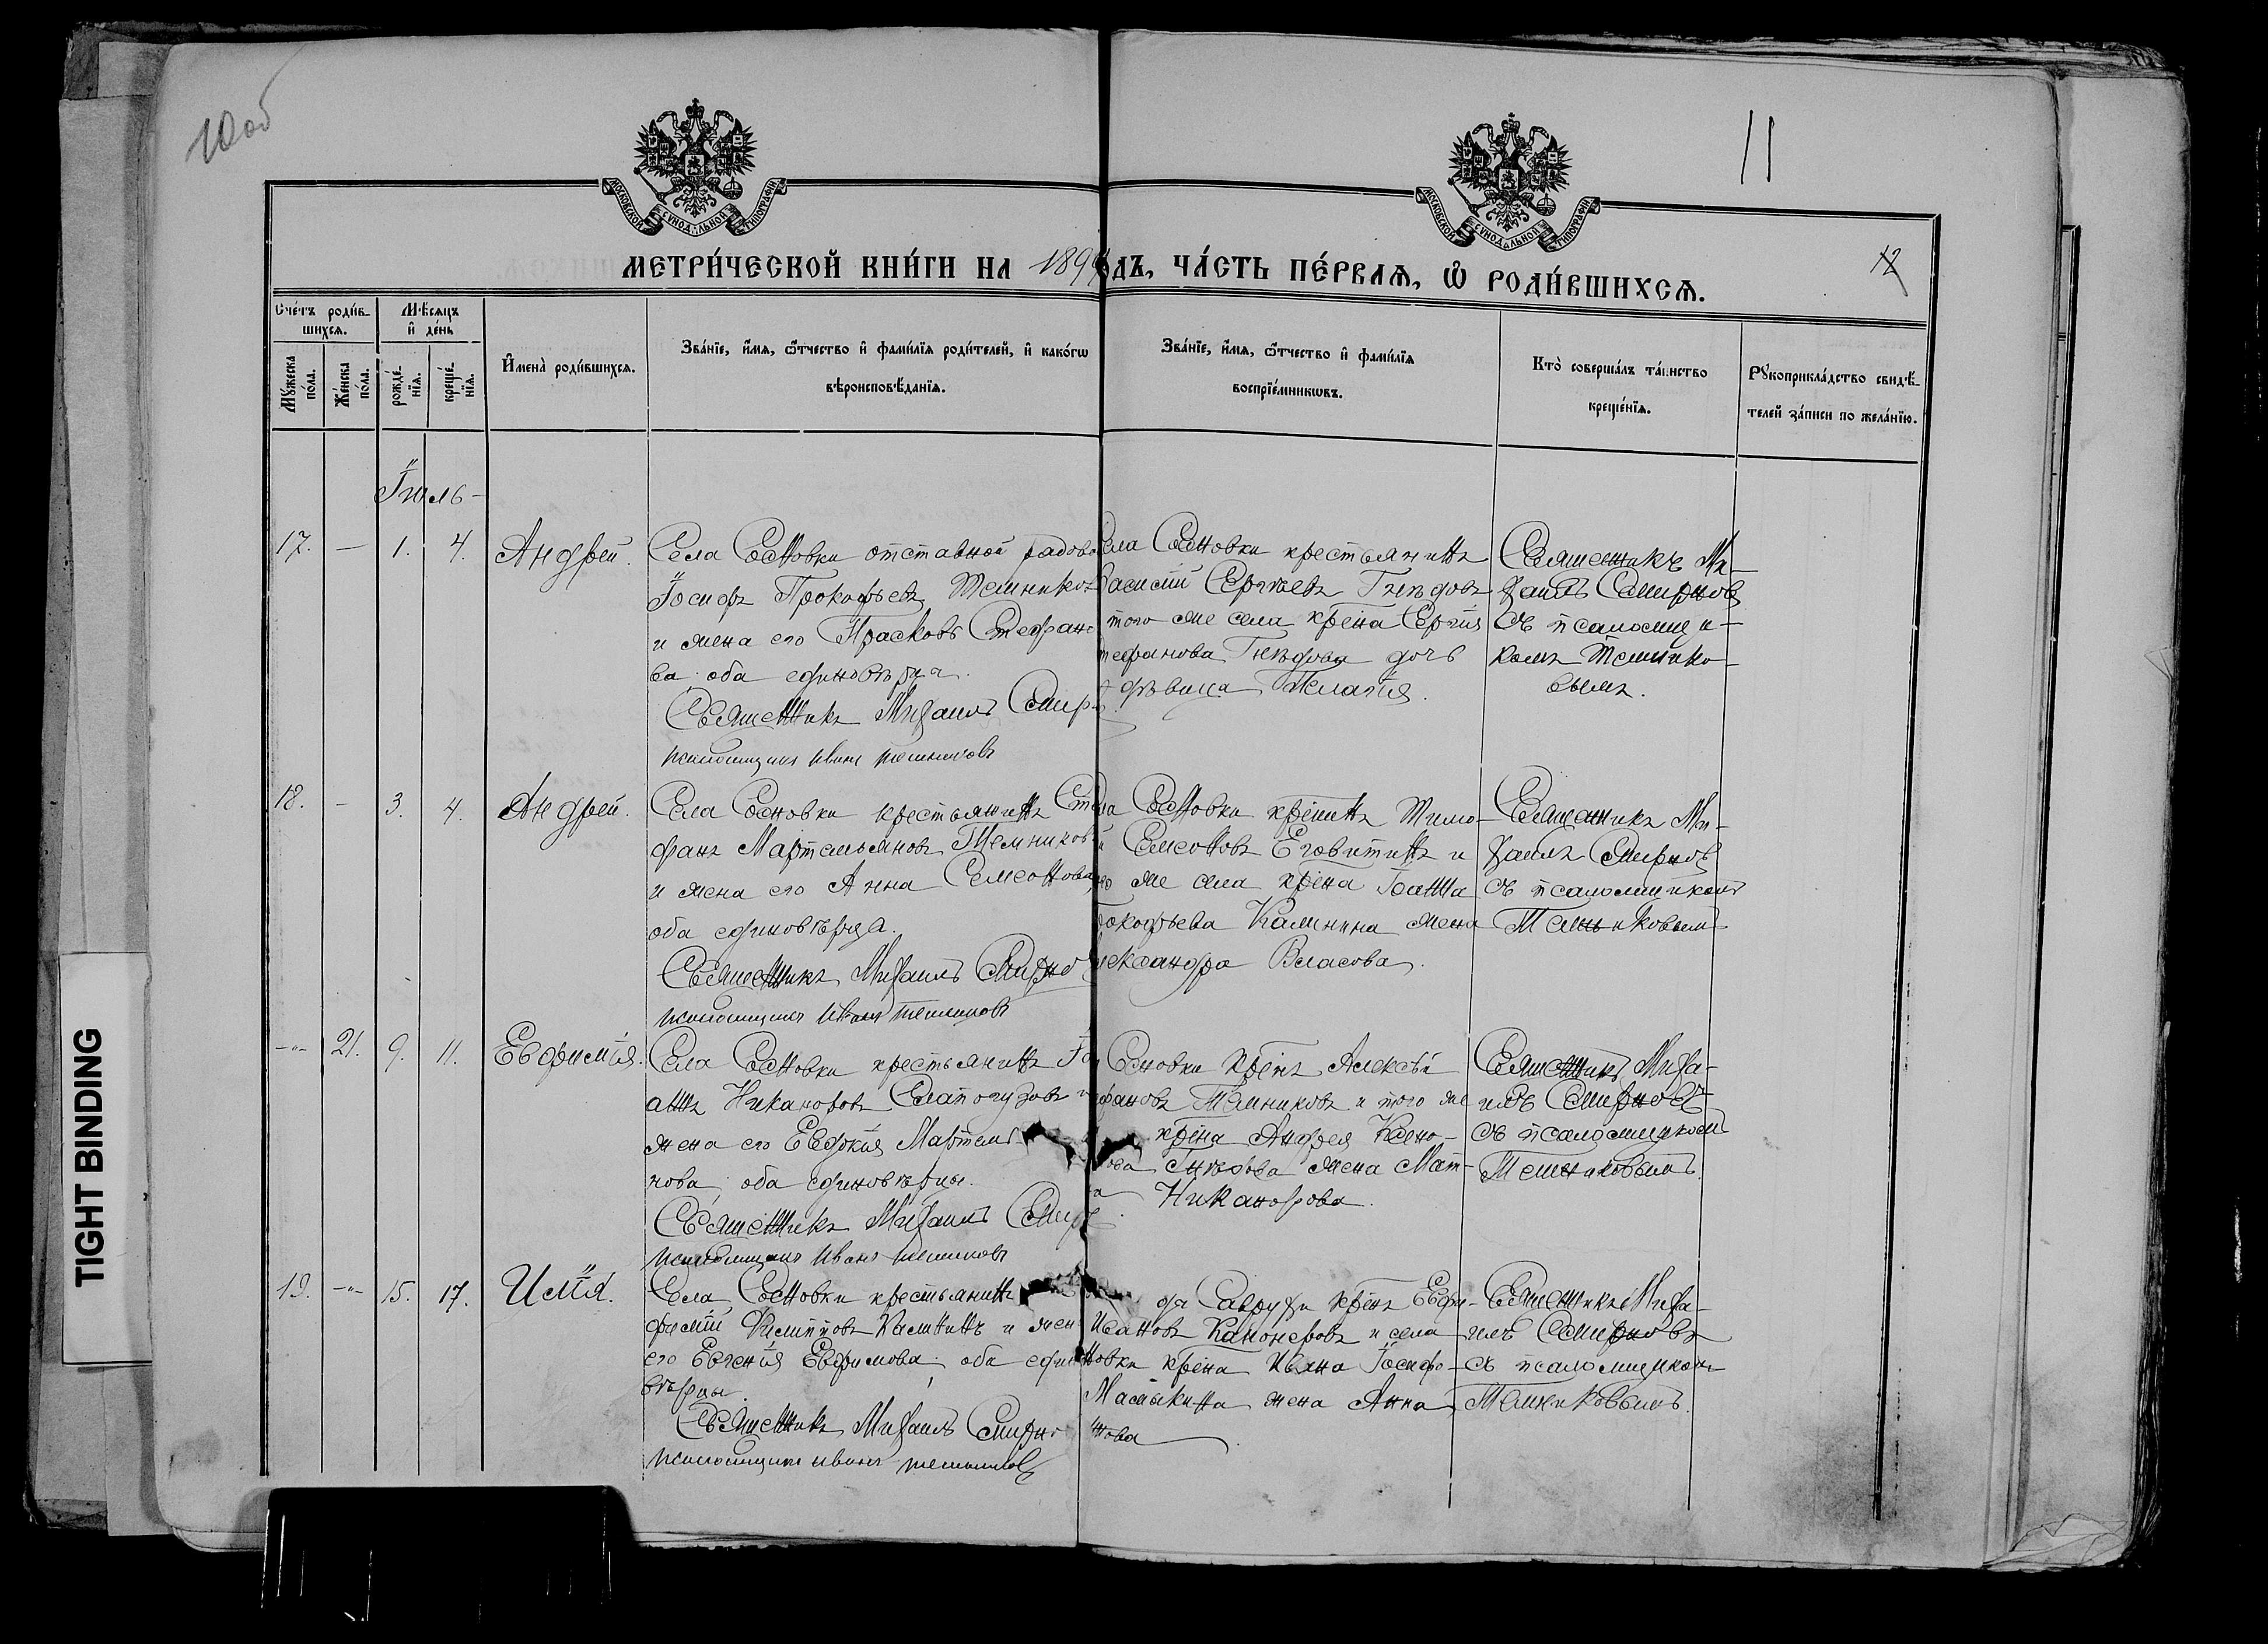 10 об
11
МОСКОВСКОЙ СУНОДАЛЬНОЙ ТИПОГРАФІИ
МОСКОВСКОЙ СУНОДАЛЬНОЙ ТИПОГРАФІИ
12
МЕТРИ́ЧЕСКОЙ КНИ́ГИ НА 1899 ДЪ, ЧА́СТЬ ПЕ́РВАѦ, Ѽ РОДИ́ВШИХСѦ.
Сче́тъ роди́в-
шихсѧ.
Мѣ́сѧцъ
и҆ де́нь
Мꙋ́жеска
по́ла.
Же́нска
по́ла.
рожде́-
нїѧ.
креще́-
нїѧ.
И҆мена̀ роди́вшихсѧ.
Зва́нїе, и҆́мѧ, ѻ҆́тчество и҆ фами́лїѧ роди́телей, и҆ како́гѡ
вѣроисповѣ́данїѧ.
Зва́нїе, и҆́мѧ, ѻ҆́тчество и҆ фами́лїѧ
воспрїе́мникѡвъ.
Кто̀ соверша́лъ та́инство
креще́нїѧ.
Рꙋкоприкла́дство свидѣ́-
телей за́писи по жела́нїю.
Іюль-
17. — 1. 4. Андрей.
Села Сосновки отставной рядово
Іосифъ Прокофьевъ Темников
и жена его Прасковь Стефано
ва оба единовѣрца.
Священникъ Михаилъ Смир
псаломщикъ Иванъ Темниковъ
ела Сосновки крестьянинъ
Василій Сергѣевъ Гнѣдовъ
того же села крѣна Сергія
тефанова Гнѣдова дочь
дѣвица Пелагія.
Священникъ Ми-
хаилъ Смирновъ
съ псаломщи-
комъ Темнико-
вымъ.
18. - 3. 4. Андрей.
Села Сосновки крестьянинъ Сте
фанъ Мартемьяновъ Темников
и жена его Анна Семенова,
оба единовѣрца.
Священникъ Михаилъ Смирно
псаломщикъ Иванъ Темниковъ
ла Сосновки крѣнинъ Тимо-
й Семеновъ Еговитинъ и
го же села крѣна Іоанна
рокофьева Калинина жена
лександра Власова.
Священникъ Ми-
хаилъ Смирновъ
съ псаломщикомъ
Темниковымъ
-"- 21. 9. 11. Евфимія.
Села Сосновки крестьянинъ Іо
аннъ Никаноровъ и
жена его Мартемь
нова оба единовѣрцы.
Священникъ Михаилъ Смир
псаломщикъ Иванъ Темниковъ
Сосновки крѣнъ Алексѣй
фановъ Темниковъ и того же
крѣна Андрея Ксено-
това Гнѣдова жена Мат-
а Никанорова.
Священникъ Миха-
илъ Смирновъ
съ псаломщикомъ
Темниковымъ.
19. -"- 15. 17. Илія.
Села Сосновки крестьянинъ
фимій Филипповъ Калининъ и жен
его Евгенія Евфимова, оба един
вѣрцы.
Священникъ Михаилъ Смирно
псаломщикъ Иванъ Темниковъ
крѣнъ Евфи-
Ивановъ Каноневъ и села
новки крѣна Ивана Іосифо-
Масыкина жена Анна
нова
Священникъ Миха-
илъ Смирновъ
съ псаломщикомъ
Темниковымъ.
TIGHT BINDING